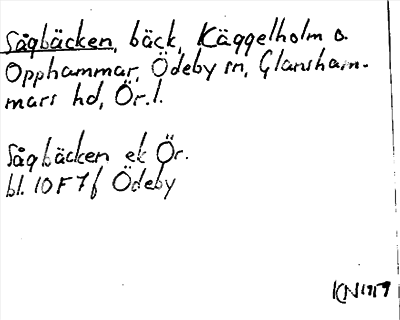 Sågbäcken, bäck, Käggelholm o.
Opphammar, Ödeby sn, Glansham-
mars hd, Ör. l.
Sågbäcken ek Ör.
bl. 10 F 7 f Ödeby